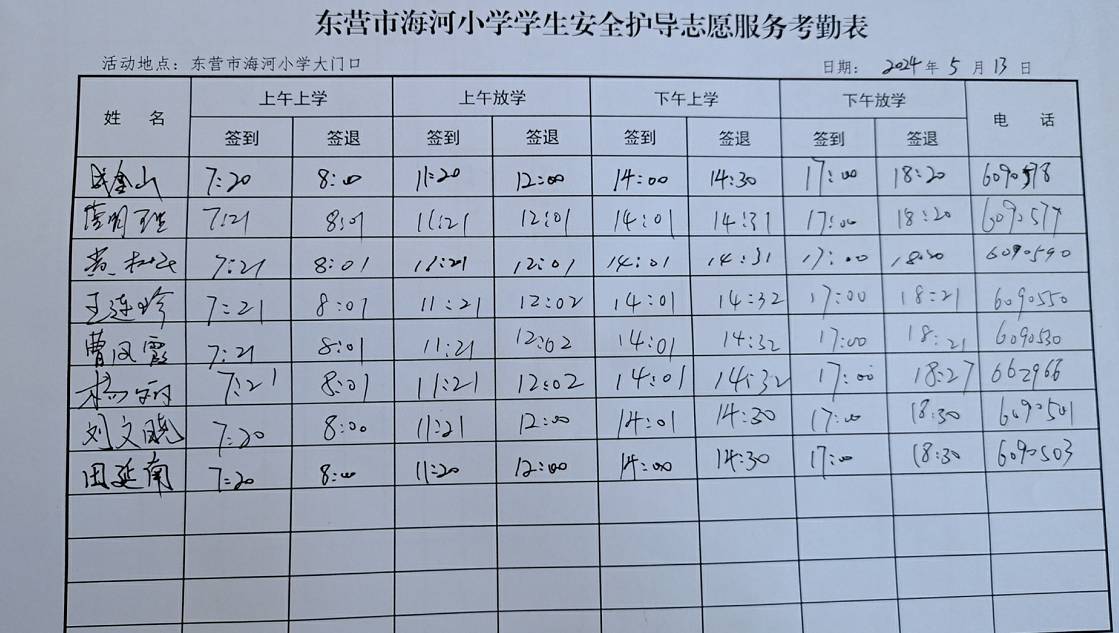 东营市海河小学学生安全护导志愿服务考勤表
活动地点：东营市海河小学大门口 日期： 2024 年 5 月 13 日
姓 名 上午上学 上午放学 下午上学 下午放学 电 话
签到 签退 签到 签退 签到 签退 签到 签退
成金山 7:20 8:00 11:20 12:00 14:00 14:30 17:00 18:20 6090578
7:21 8:01 11:21 12:01 14:01 14:31 17:00 18:20 6090577
7:21 8:01 11:21 12:01 14:01 14:31 17:00 18:20 6090590
王连珍 7:21 8:01 11:21 12:02 14:01 14:32 17:00 18:21 6090550
曹风霞 7:21 8:01 11:21 12:02 14:01 14:32 17:00 18:21 6090530
杨丽 7:21 8:01 11:21 12:02 14:01 14:32 17:00 18:27 662966
刘文晓 7:20 8:00 11:21 12:00 14:01 14:30 17:00 18:30 6090501
田延南 7:20 8:00 11:20 12:00 14:00 14:30 17:00 18:30 6090503